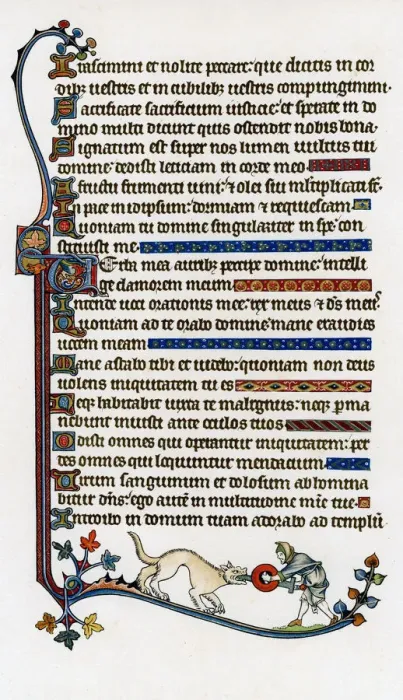 Irascimini et nolite peccare: que dicitis in cor
dibʒ uestris et in cubilibʒ uestris compungimini.
Sacrificate sacrificium iusticie: et sperate in do
mino multi dicunt quis ostendit nobis bona.
Signatum est super nos lumen uultus tui
domine: dedisti leticiam in corde meo.
A fructu frumenti uini: ⁊ olei sui multiplicati st̄.
In pace in idipsum: dormiam ⁊ requiescam.
Quoniam tu domine singulariter in spe: con
stituisti me.
Uerba mea auribʒ percipe domine: intelli
ge clamorem meum.
Intende uoci orationis mee: rex meus ⁊ ds̄ meus.
Quoniam ad te orabo domine: mane exaudies
uocem meam
Mane astabo tibi et uidebo: quoniam non deus
uolens iniquitatem tu es
Neqʒ habitabit iuxta te malignus: neqʒ ꝑma
nebunt iniusti ante oculos tuos
Odisti omnes qui operantur iniquitatem: per
des omnes qui loquuntur mendacium
Uirum sanguinum et dolosum abhomina
bitur dn̄s: ego autē in multitudine mīe tue.
Introibo in domum tuam adorabo ad templū